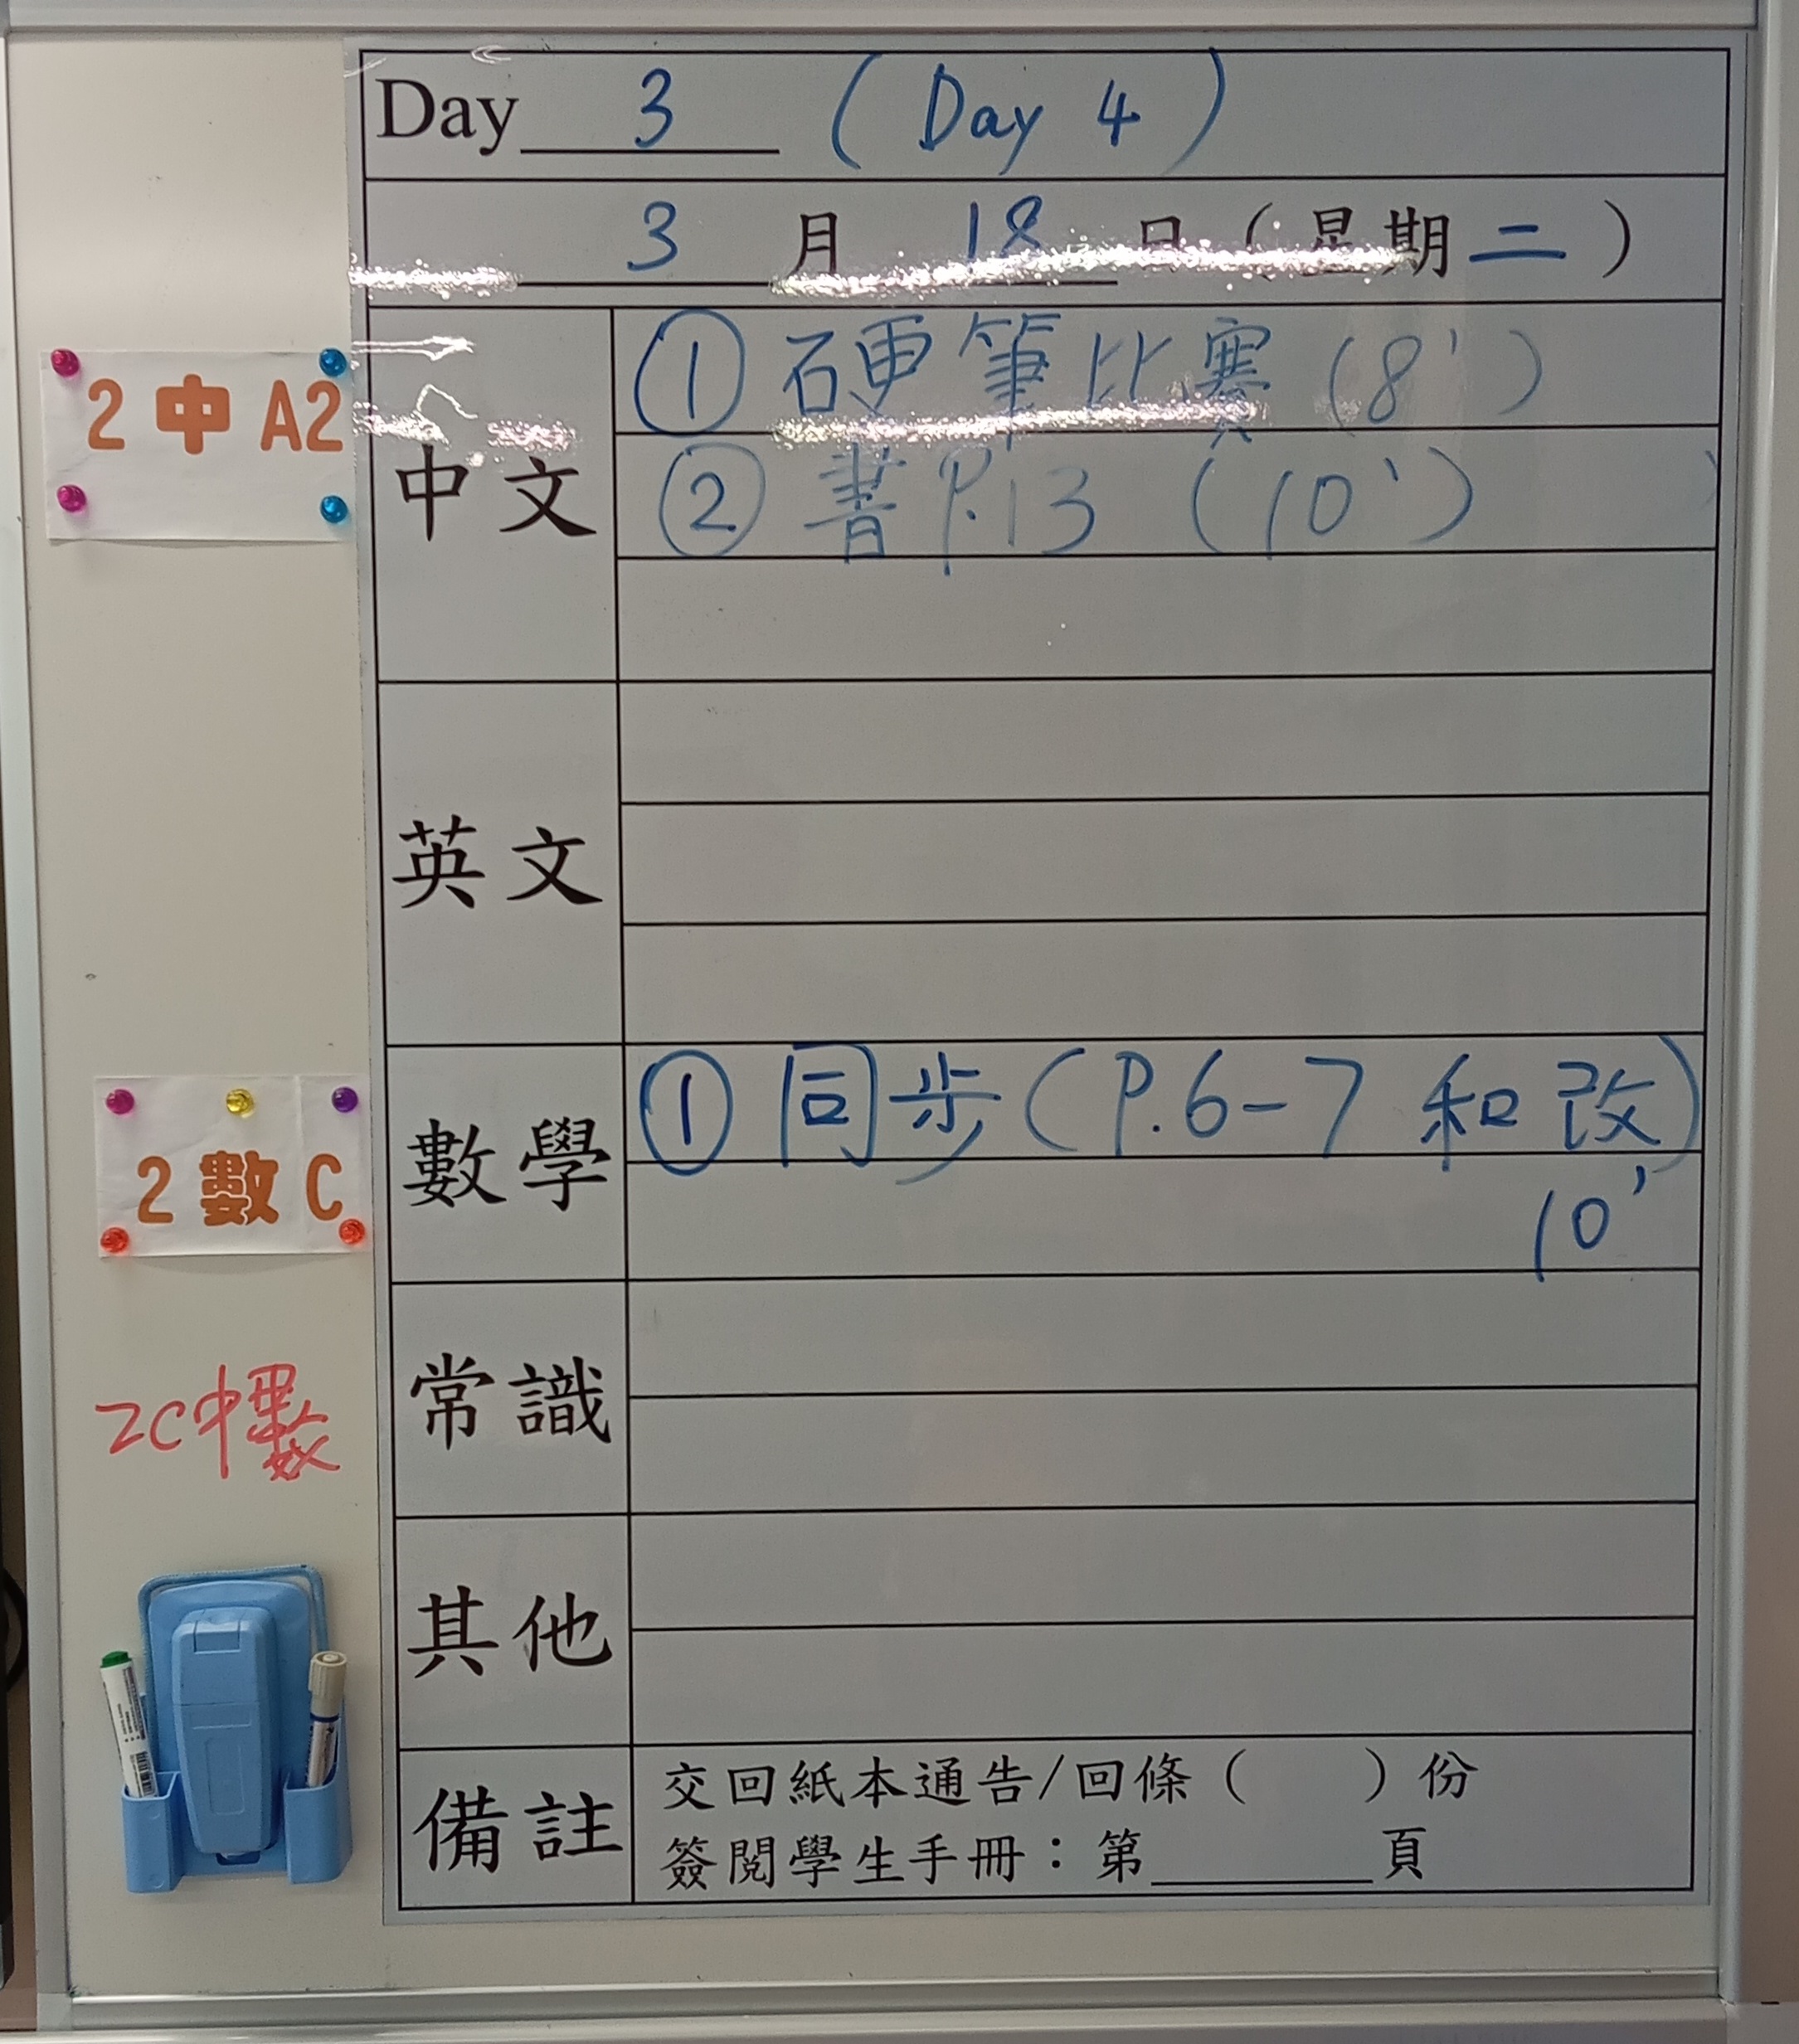 Day 3 ( Day 4 )
3 月 18 日 ( 星期 二 )
2 中 A2
中文
① 硬筆比賽 (8')
② 書 P.13 (10')
英文
2 數 C
數學
① 同步 ( P.6-7 和 改 )
10'
2C中數
常識
其他
備註
交回紙本通告/回條 ( ) 份
簽閱學生手冊：第______頁